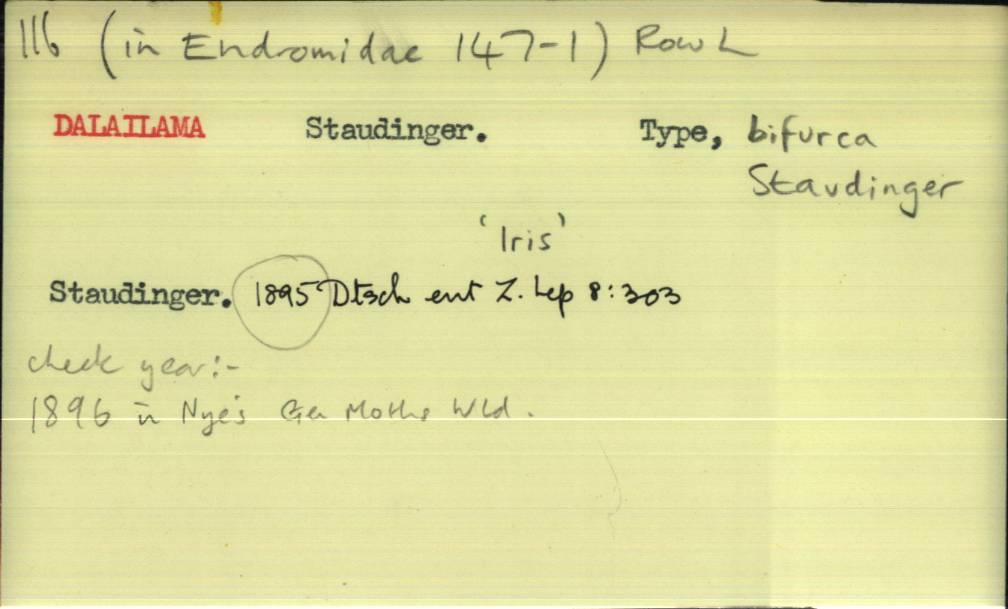 116 (in Endromidae 147-1) Row L
DALAILAMA Staudinger. Type, bifurca
Staudinger
'Iris'
Staudinger. 1895 Dtsch ent Z. Lep 8:303
check year:-
1896 in Nye's Gen Moths Wld.